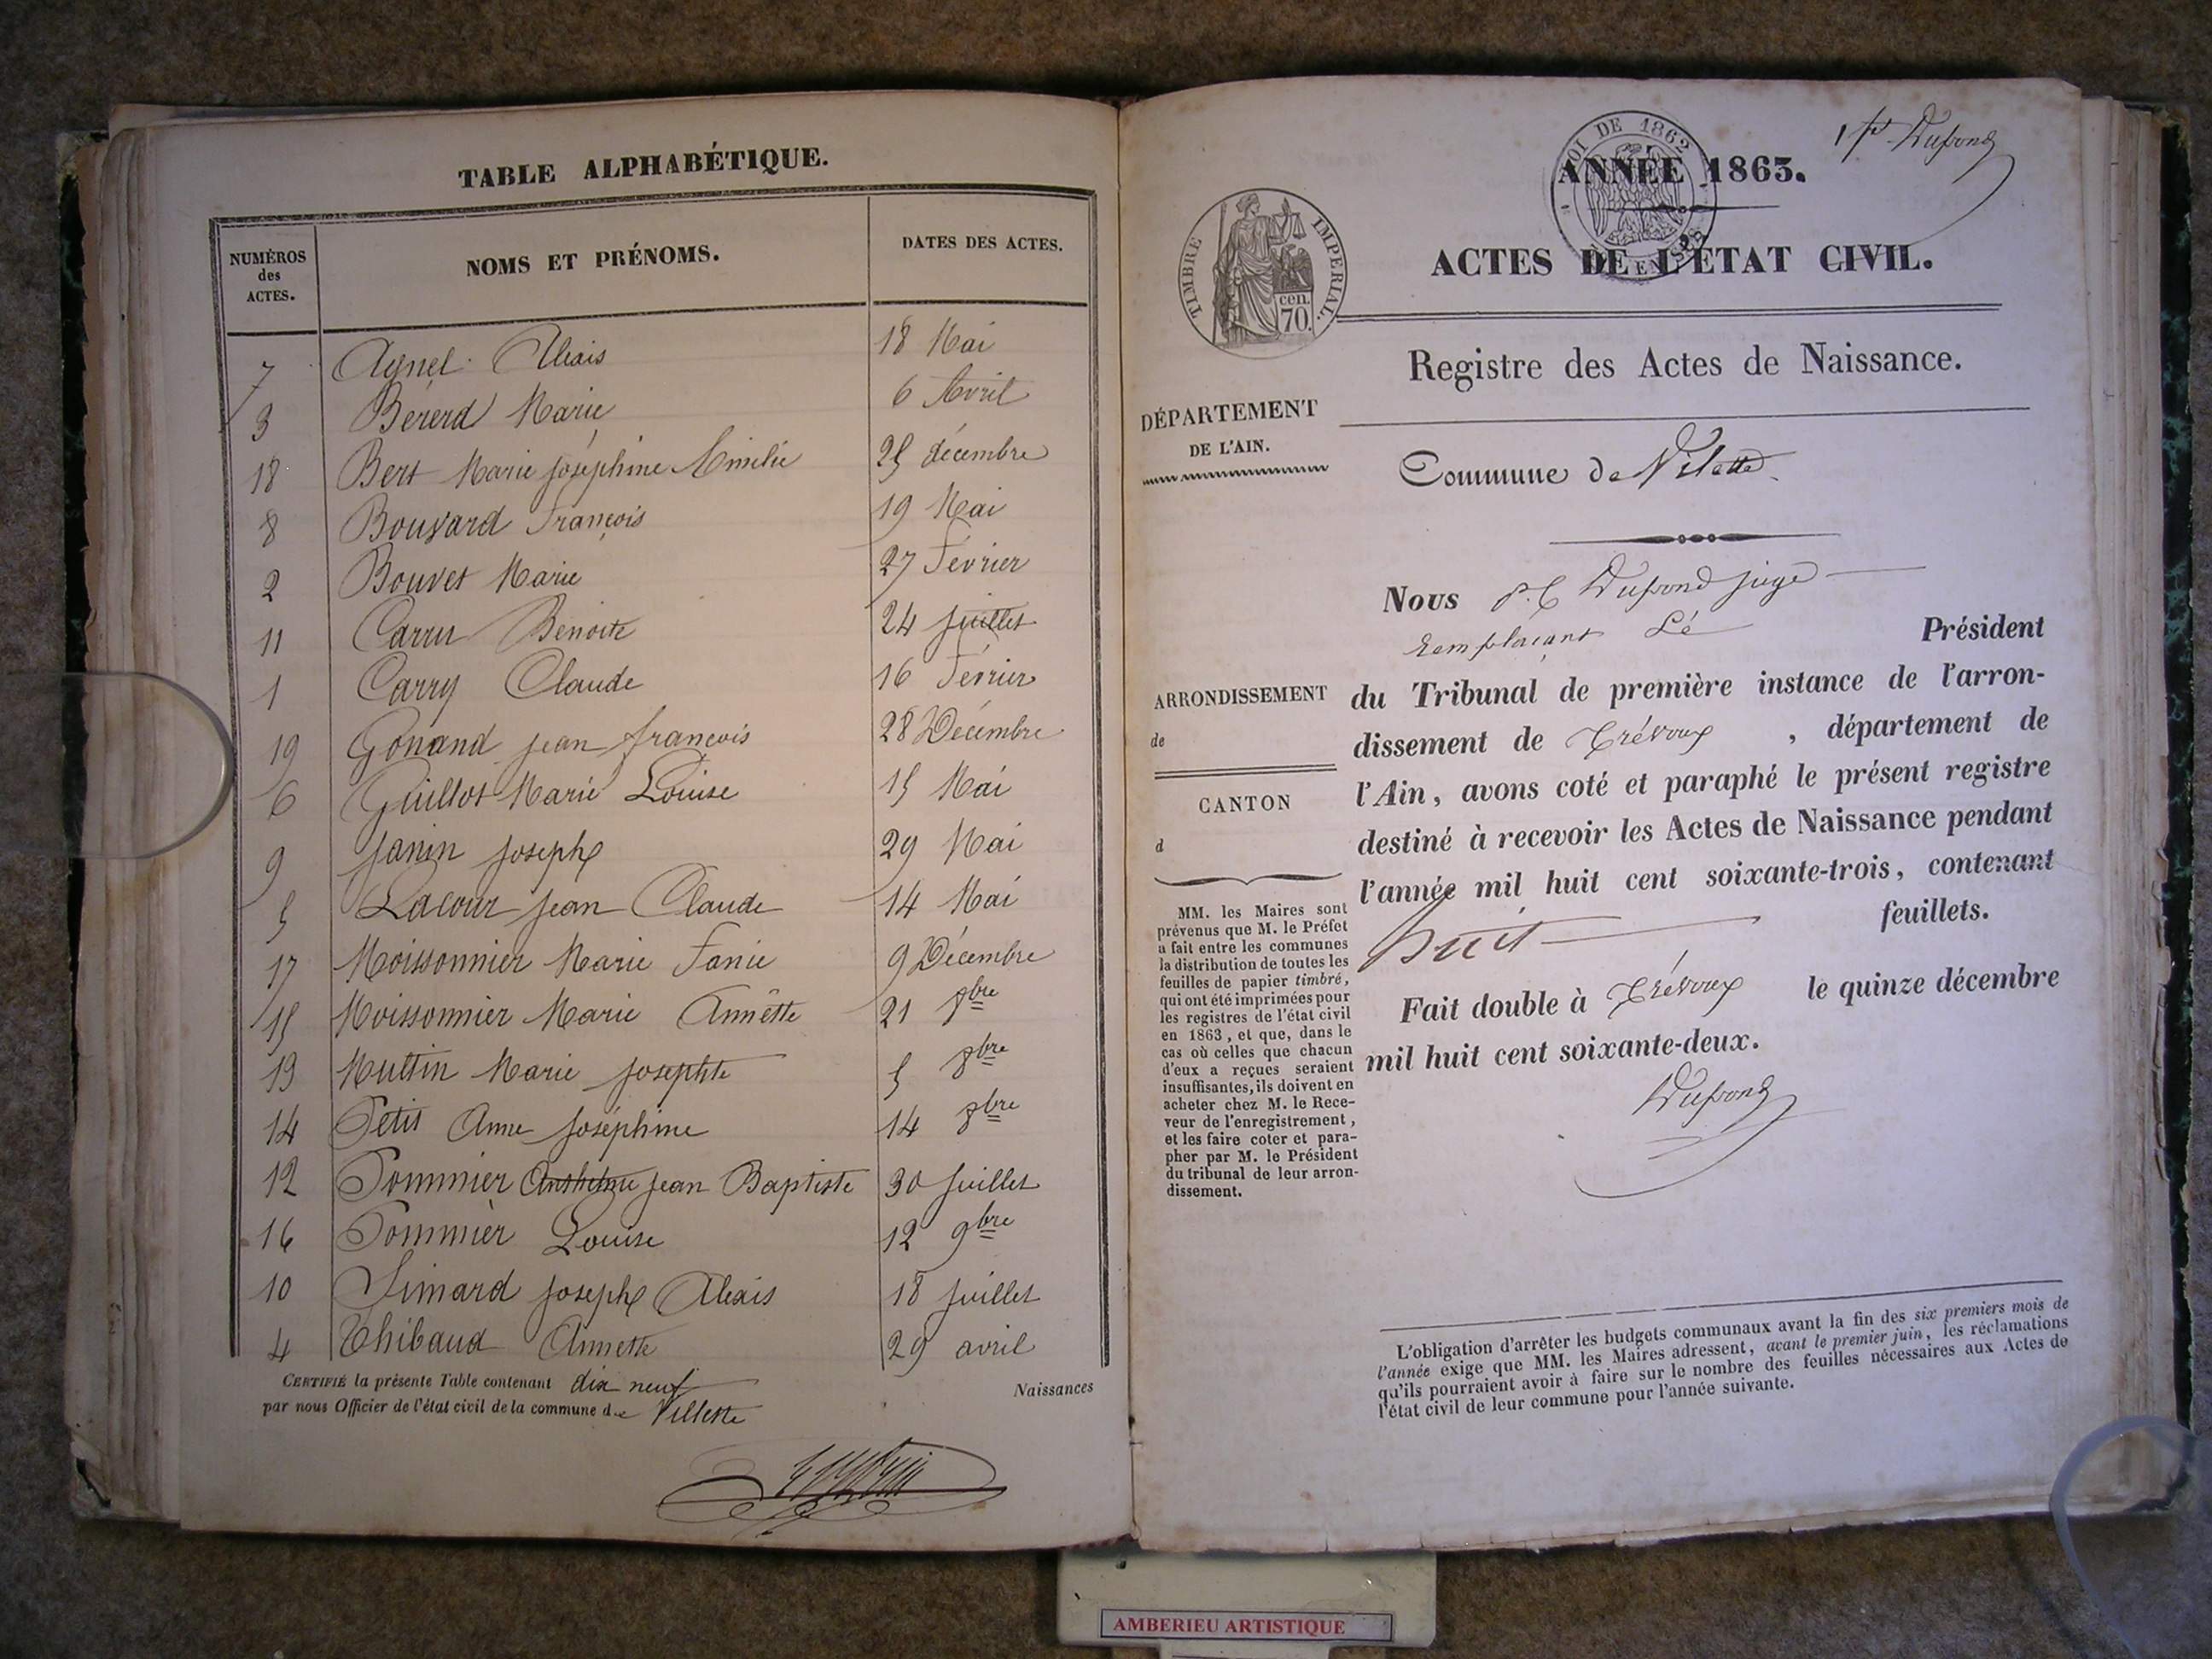 TABLE ALPHABÉTIQUE.
NUMÉROS
des
ACTES.
NOMS ET PRÉNOMS.
DATES DES ACTES.
7 Agnel Alexis 18 Mai
3 Bererd Marie 6 Avril
18 Bert Marie joséphine Emilie 25 décembre
8 Bouvard François 19 Mai
2 Bouvet Marie 27 Février
11 Carru Benoite 24 juillet
1 Carry Claude 16 Février
19 Gonand jean françois 28 Décembre
6 Guillot Marie Louise 15 Mai
9 janin joseph 29 Mai
5 Lacour jean Claude 14 Mai
17 Moissonnier Marie Fanie 9 Décembre
15 Moissonnier Marie Annette 21 8bre
13 Muttin Marie josephte 5 8bre
14 Petit Anne joséphine 14 8bre
12 Pommier jean Baptiste 30 juillet
16 Pommier Louise 12 9bre
10 Simard joseph Alexis 18 juillet
4 Thibaud Annette 29 avril
CERTIFIÉ la présente Table contenant dix neuf Naissances
par nous Officier de l'état civil de la commune de Villette
1er Dupond
LOI DE 1862
ANNÉE 1863.
TIMBRE IMPERIAL.
cen.
70.
ACTES DE L'ÉTAT CIVIL.
Registre des Actes de Naissance.
DÉPARTEMENT
DE L'AIN.
Commune de Vilette
Nous Dupond juge
remplaçant Lé Président
ARRONDISSEMENT
de
CANTON
d
du Tribunal de première instance de l'arron-
dissement de Trévoux , département de
l'Ain, avons coté et paraphé le présent registre
destiné à recevoir les Actes de Naissance pendant
l'année mil huit cent soixante-trois, contenant
huit feuillets.
Fait double à Trévoux le quinze décembre
mil huit cent soixante-deux.
Dupond
MM. les Maires sont
prévenus que M. le Préfet
a fait entre les communes
la distribution de toutes les
feuilles de papier timbré,
qui ont été imprimées pour
les registres de l'état civil
en 1863, et que, dans le
cas où celles que chacun
d'eux a reçues seraient
insuffisantes, ils doivent en
acheter chez M. le Rece-
veur de l'enregistrement,
et les faire coter et para-
pher par M. le Président
du tribunal de leur arron-
dissement.
L'obligation d'arrêter les budgets communaux avant la fin des six premiers mois de
l'année exige que MM. les Maires adressent, avant le premier juin, les réclamations
qu'ils pourraient avoir à faire sur le nombre des feuilles nécessaires aux Actes de
l'état civil de leur commune pour l'année suivante.
AMBERIEU ARTISTIQUE